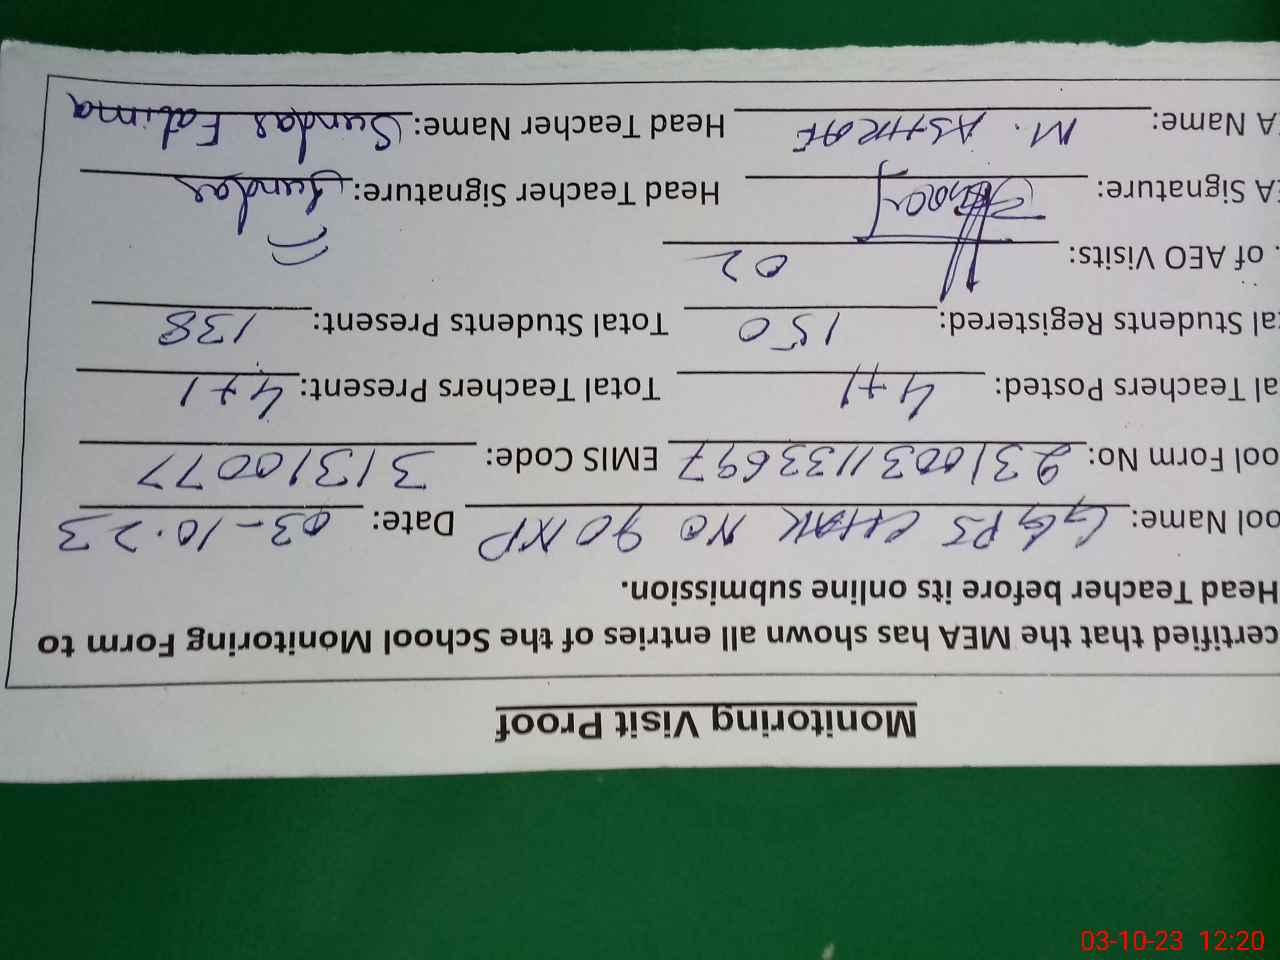 Monitoring Visit Proof
certified that the MEA has shown all entries of the School Monitoring Form to
Head Teacher before its online submission.
ool Name: GGPS CHAK NO 90/NP Date: 03-10-23
ool Form No: 231003113369 7 EMIS Code: 31310077
al Teachers Posted: 4+1 Total Teachers Present: 4+1
tal Students Registered: 150 Total Students Present: 138
. of AEO Visits: 02
EA Signature: Head Teacher Signature: Sundas
A Name: M. ASHRAF Head Teacher Name: Sundas Fatima
03-10-23 12:20